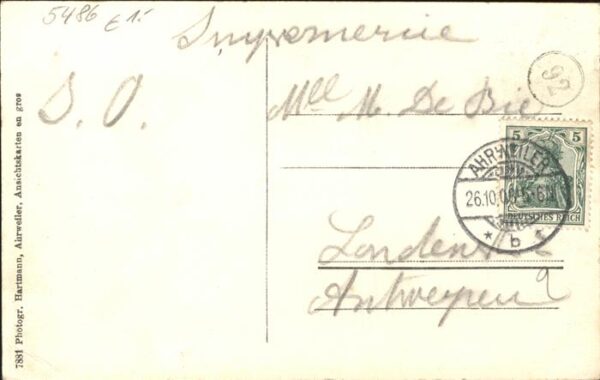 5486 € 1.-
Imprimerie
92
S. O.
Mlle M. De Bie
5 5
AHRWEILER
26.10.0
5-6N
* b *
DEUTSCHES REICH
Antwerpen
7881 Photogr. Hartmann, Ahrweiler, Ansichtskarten en gros